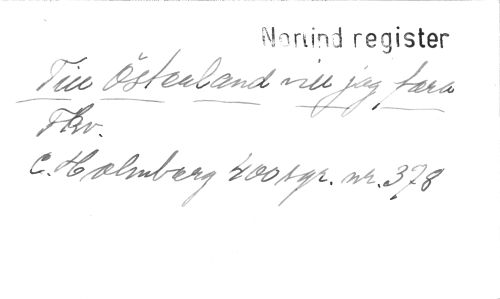 Norlind register
Till Österland vill jag fara
Fkv.
C. Holmberg 400 sgr. nr. 378